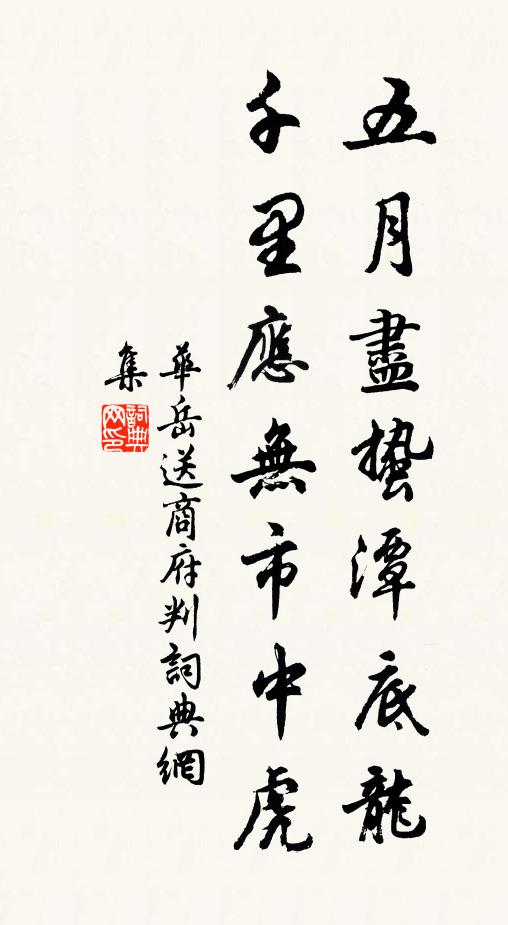 五月盡蟄潭底龍
千里應無市中虎
華岳送商府判詞典網
集
詞典
网印